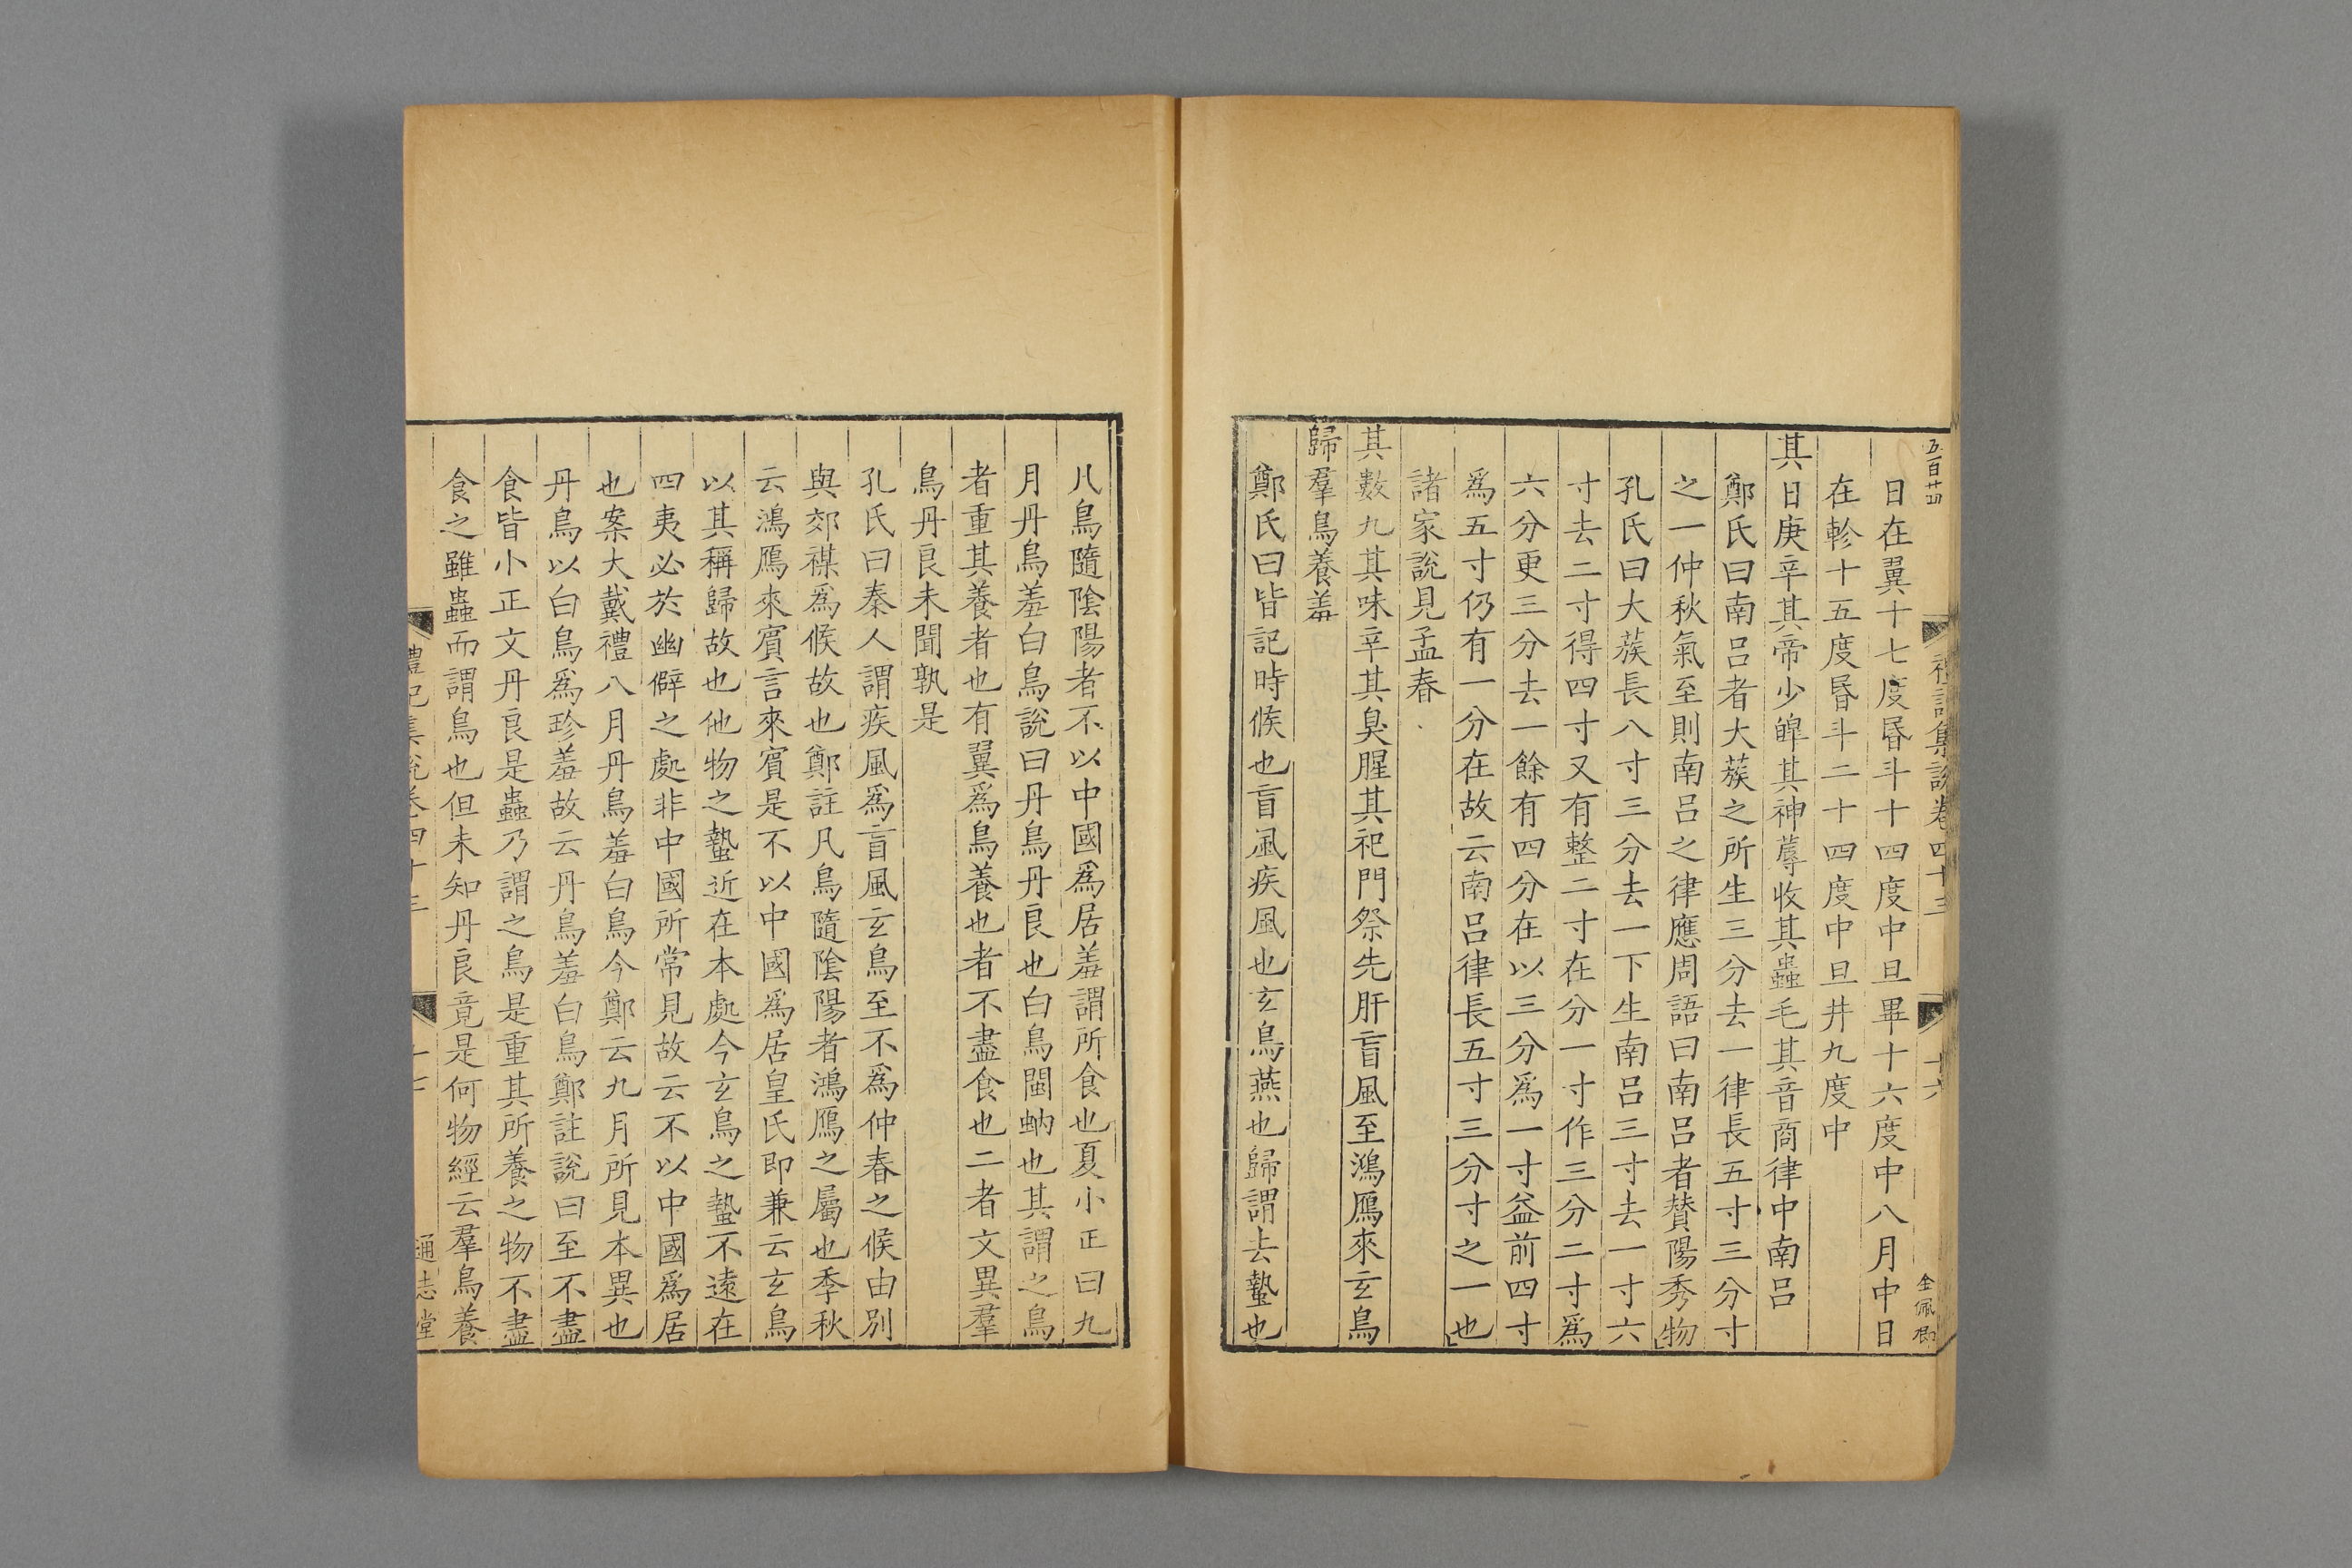 五百廿四
禮記集說卷四十三
十六
金佩
日在翼十七度昬斗十四度中旦畢十六度中八月中日
在軫十五度昬斗二十四度中旦井九度中
其日庚辛其帝少皥其神蓐收其蟲毛其音商律中南吕
鄭氏曰南吕者大蔟之所生三分去一律長五寸三分寸
之一仲秋氣至則南吕之律應周語曰南吕者賛陽秀物
孔氏曰大蔟長八寸三分去一下生南吕三寸去一寸六
寸去二寸得四寸又有整二寸在分一寸作三分二寸爲
六分更三分去一餘有四分在以三分爲一寸益前四寸
爲五寸仍有一分在故云南吕律長五寸三分寸之一也
諸家說見孟春
其數九其味辛其臭腥其祀門祭先肝盲風至鴻鴈來玄鳥
歸羣鳥養羞
鄭氏曰皆記時候也盲風疾風也玄鳥燕也歸謂去蟄也
凡鳥隨隂陽者不以中國爲居羞謂所食也夏小正曰九
月丹鳥羞白鳥說曰丹鳥丹良也白鳥閩蚋也其謂之鳥
者重其養者也有翼爲鳥養也者不盡食也二者文異羣
鳥丹良未聞孰是
孔氏曰秦人謂疾風爲盲風玄鳥至不爲仲春之候由别
與郊禖爲候故也鄭註凡鳥隨隂陽者鴻鴈之屬也季秋
云鴻鴈來賔言來賔是不以中國爲居皇氏即兼云玄鳥
以其稱歸故也他物之蟄近在本處今玄鳥之蟄不遠在
四夷必於幽僻之處非中國所常見故云不以中國爲居
也案大戴禮八月丹鳥羞白鳥今鄭云九月所見本異也
丹鳥以白鳥爲珍羞故云丹鳥羞白鳥鄭註說曰至不盡
食皆小正文丹良是蟲乃謂之鳥是重其所養之物不盡
食之雖蟲而謂鳥也但未知丹良竟是何物經云羣鳥養
禮記集說卷四十三
十七
通志堂